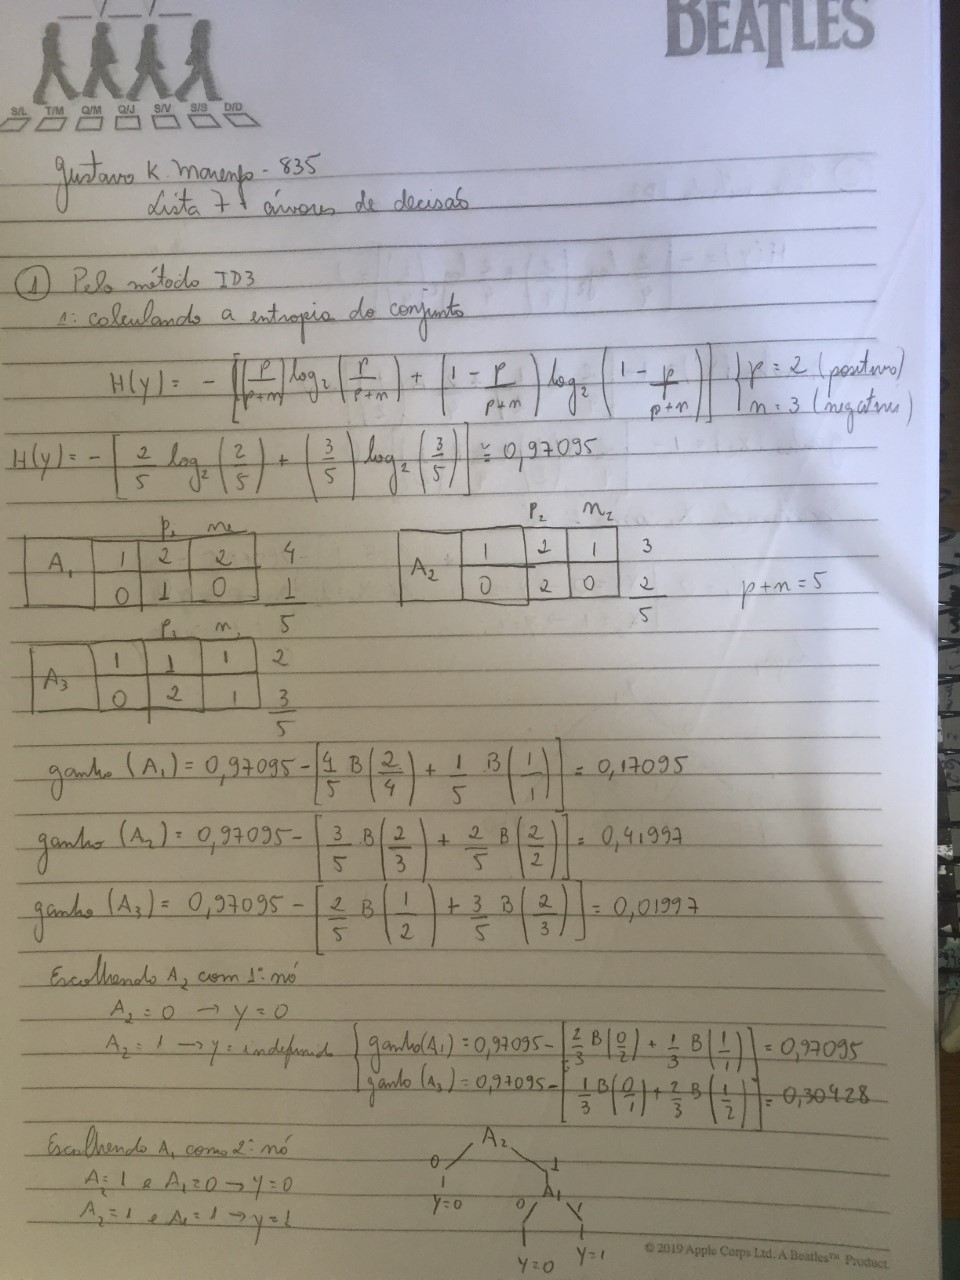 BEATLES
S/L T/M Q/M Q/J S/V S/S D/D
Gustavo K. - 835
Lista 7 - árvores de decisão
① Pelo método ID3
1: calculando a entropia do conjunto
H(y) = - [(p/(p+n)) log₂ (p/(p+n)) + (1 - p/(p+n)) log₂ (1 - p/(p+n))] } p = 2 (positivo)
n = 3 (negativo)
H(y) = - [2/5 log₂ (2/5) + (3/5) log₂ (3/5)] ≅ 0,97095
p₂ n₂
A₁ 1 2 2 4
0 1 0 1
5
A₂ 1 2 1 3
0 2 0 2
5
p+n = 5
A₃ 1 1 1 2
0 2 1 3
5
ganho (A₁) = 0,97095 - [4/5 B(2/4) + 1/5 B(1/1)] = 0,17095
ganho (A₂) = 0,97095 - [3/5 B(2/3) + 2/5 B(2/2)] = 0,41997
ganho (A₃) = 0,97095 - [2/5 B(1/2) + 3/5 B(2/3)] = 0,01997
Escolhendo A₂ com 1º nó
A₂ = 0 → y = 0
A₂ = 1 → y = indefinido { ganho(A₁) = 0,97095 - [2/3 B(0/2) + 1/3 B(1/1)] = 0,97095
ganho (A₃) = 0,97095 - [1/3 B(0/1) + 2/3 B(1/2)] = 0,30428
Escolhendo A₁ como 2º nó
A₂ = 1 e A₁ = 0 → y = 0
A₂ = 1 e A₁ = 1 → y = 1
A₂
0 1
y=0 A₁
0 1
y=0 y=1
© 2019 Apple Corps Ltd. A Beatles™ Product.